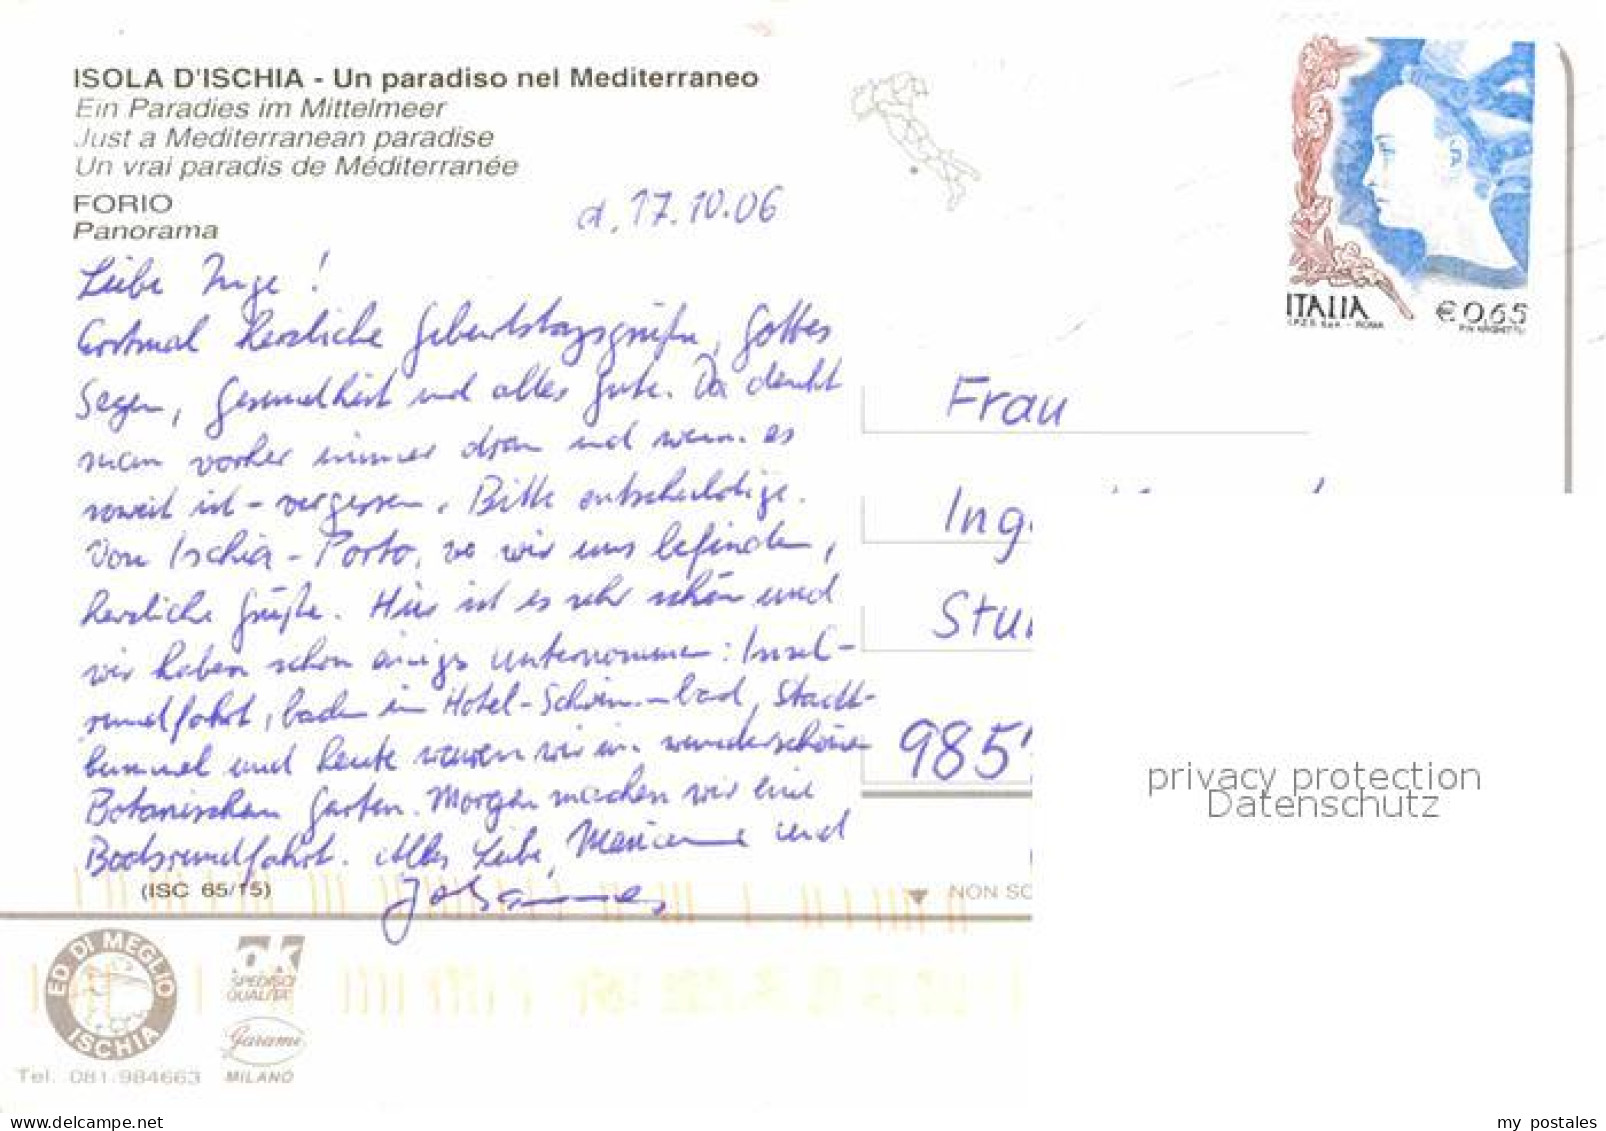 ISOLA D'ISCHIA - Un paradiso nel Mediterraneo
Ein Paradies im Mittelmeer
Just a Mediterranean paradise
Un vrai paradis de Méditerranée
FORIO
Panorama
d. 17.10.06
Liebe Inge!
Erstmal herzliche Geburtstagsgrüße, Gottes
Segen, Gesundheit und alles Gute. Da denkt
man vorher immer dran und wenn es
soweit ist - vergessen. Bitte entschuldige.
Von Ischia - Porto, wo wir uns befinden,
herzliche Grüße. Hier ist es sehr schön und
wir haben schon einiges unternommen: Insel-
rundfahrt, baden im Hotel-Schwimmbad, Stadt-
bummel und heute waren wir im wunderschönen
Botanischen Garten. Morgen machen wir eine
Bootsrundfahrt. Alles Liebe, Marianne und
Johannes
(ISC 65/15)
ED. DI MEGLIO
ISCHIA
Tel. 081.984663
OK
SPEDISCI
QUALITA'
Garami
MILANO
ITALIA
I.P.Z.S. S.p.A. - ROMA
€0,65
Frau
Ing
Stu
985
NON SC
privacy protection
Datenschutz
www.delcampe.net
my_postales